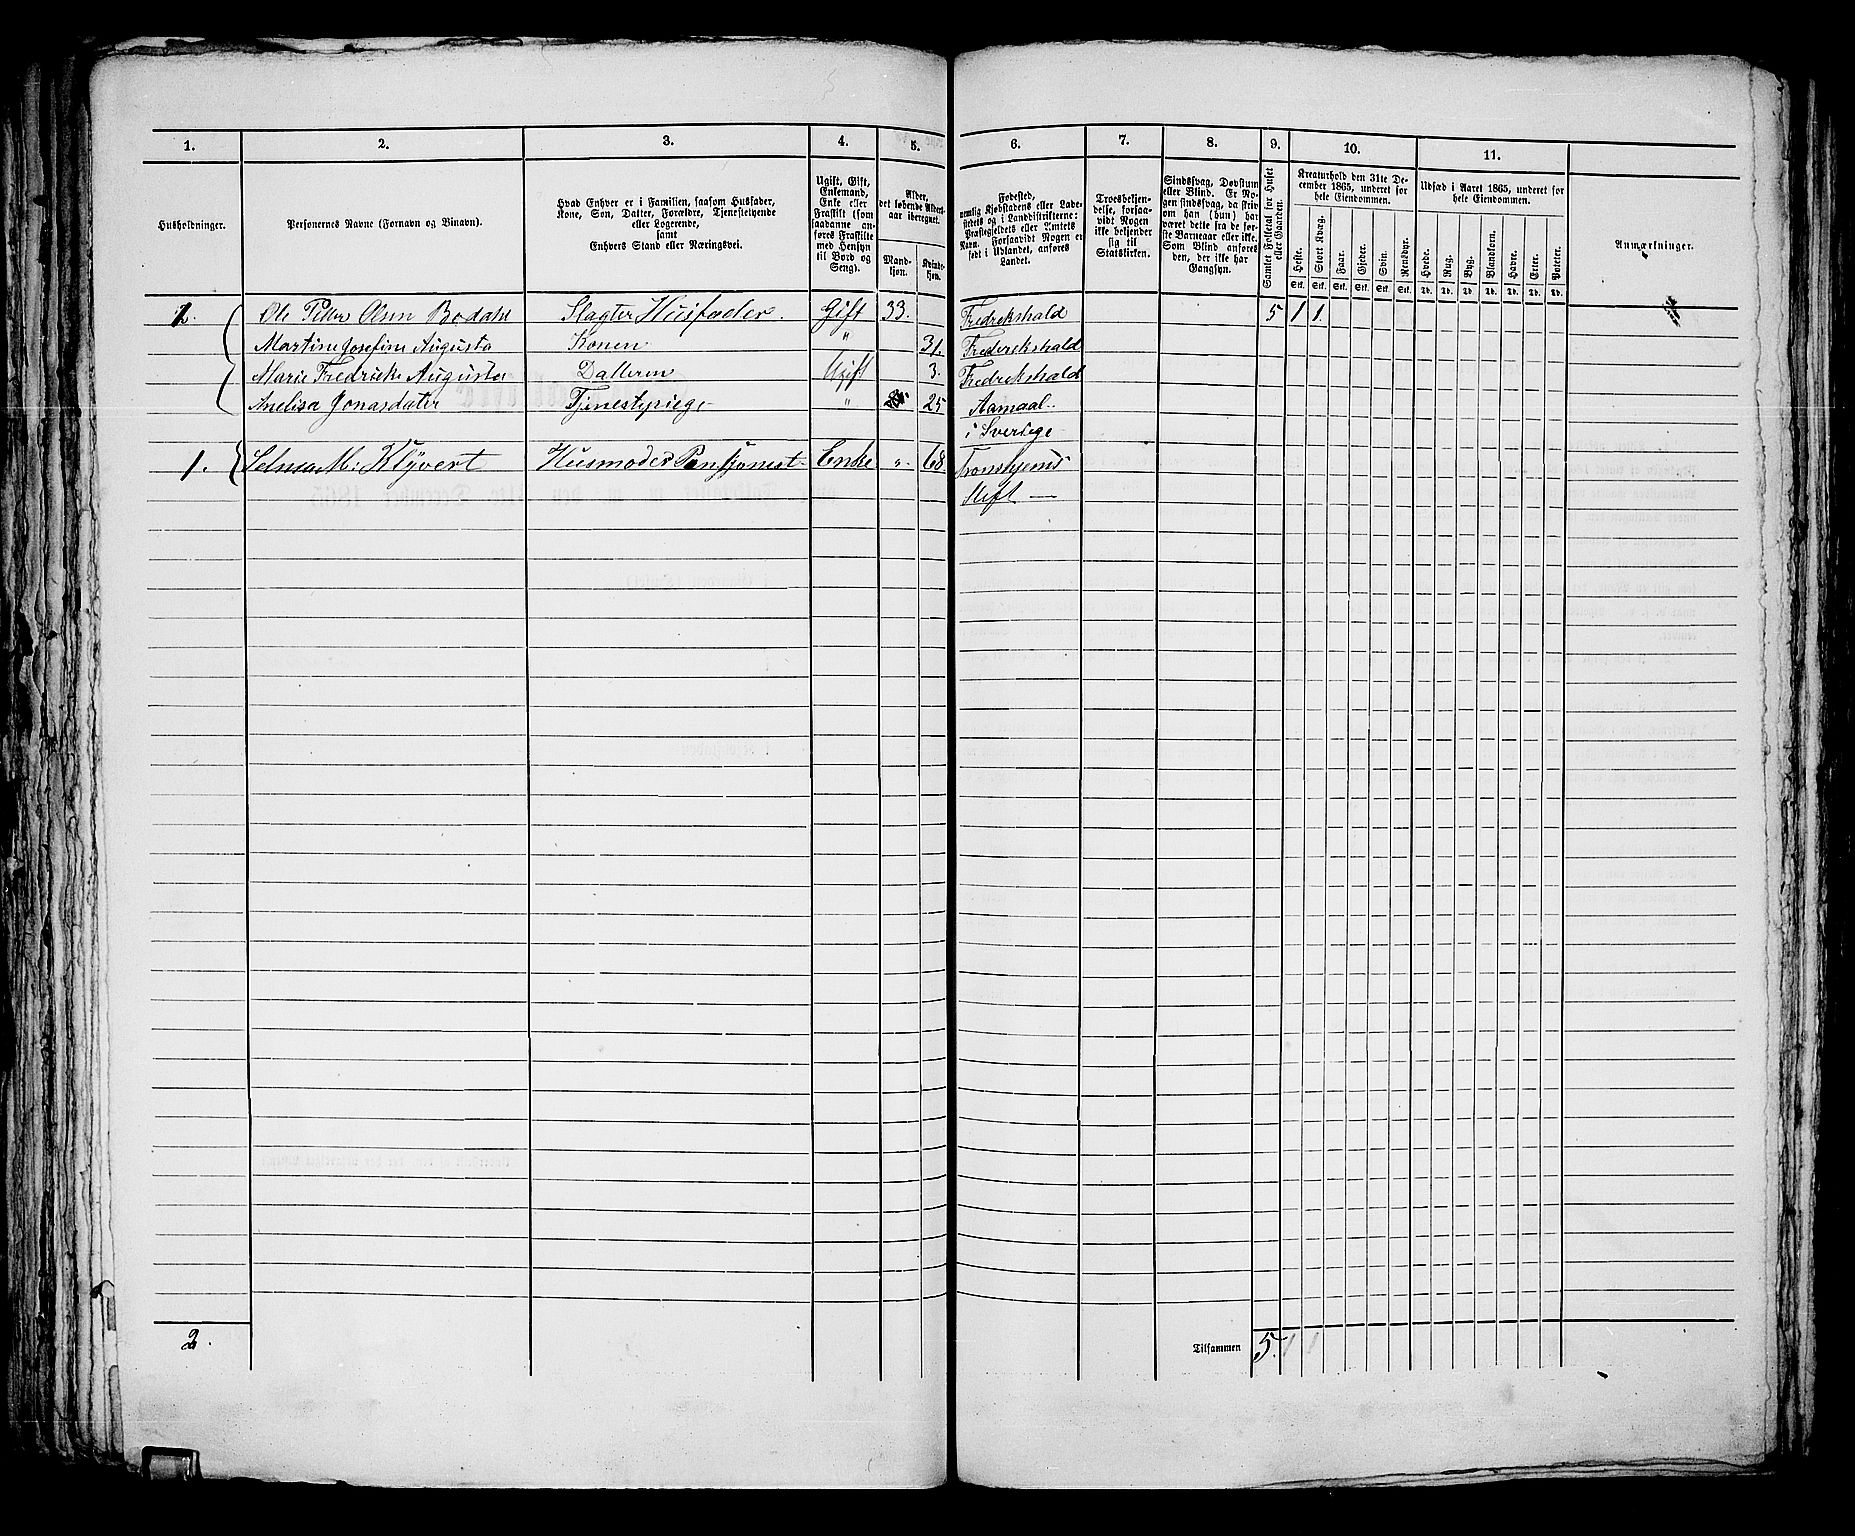 1. 2. 3. 4. 5. 6. 7. 8. 9. 10. 11.
Husholdninger.
Personernes Navne (Fornavn og Binavn).
Hvad Enhver er i Familien, saasom Husfader,
Kone, Søn, Datter, Forældre, Tjenestetyende
eller Logerende,
samt
Enhvers Stand eller Næringsvei.
Ugift, Gift,
Enkemand,
Enke eller
Fraskilt (som
saadanne an-
føres Fraskilte
med Hensyn
til Bord og
Seng).
Alder,
det løbende Alders-
aar iberegnet.
Mand-
kjøn.
Kvinde-
kjøn.
Fødested,
nemlig Kjøbstadens eller Lade-
stedets og i Landdistrikterne:
Præstegjeldets eller Amtets
Navn. Forsaavidt Nogen er
født i Udlandet, anføres
Landet.
Troesbekjen-
delse, forsaa-
vidt Nogen
ikke bekjender
sig til
Statskirken.
Sindssvag, Døvstum
eller Blind. Er No-
gen sindssvag, da skriv
om han (hun) har
været dette fra de før-
ste Barneaar eller ikke.
Som Blind anføres
den, der ikke har
Gangsyn.
Samlet Folketal for Huset
eller Gaarden.
Kreaturhold den 31te De-
cember 1865, underet for
hele Eiendommen.
Heste. Stort Kvæg. Faar. Gjeder. Svin. Rensdyr.
Stk. Stk. Stk. Stk. Stk. Stk.
Udsæd i Aaret 1865, underet for
hele Eiendommen.
Hvede. Rug. Byg. Blandkorn. Havre. Erter. Poteter.
Td. Td. Td. Td. Td. Td. Td.
Anmærkninger.
1. Ole Petter Olsen Bodahl Slagter Husfader. Gift 33. Fredrikshald 5 1 1.
Martine Josefine Augusta Konen " 31. Frederikshald
Marie Fredrikke Augusta Datteren Ugift 3. Fredrikshald
Anelisa Jonasdater Tjenestepiege " 25 Aamaal..
i Sverige
1. Selma M: Klÿvert Husmoder Pensjonest Enke " 68 Tronshjems
Stift —
2. Tilsammen 5. 1 1